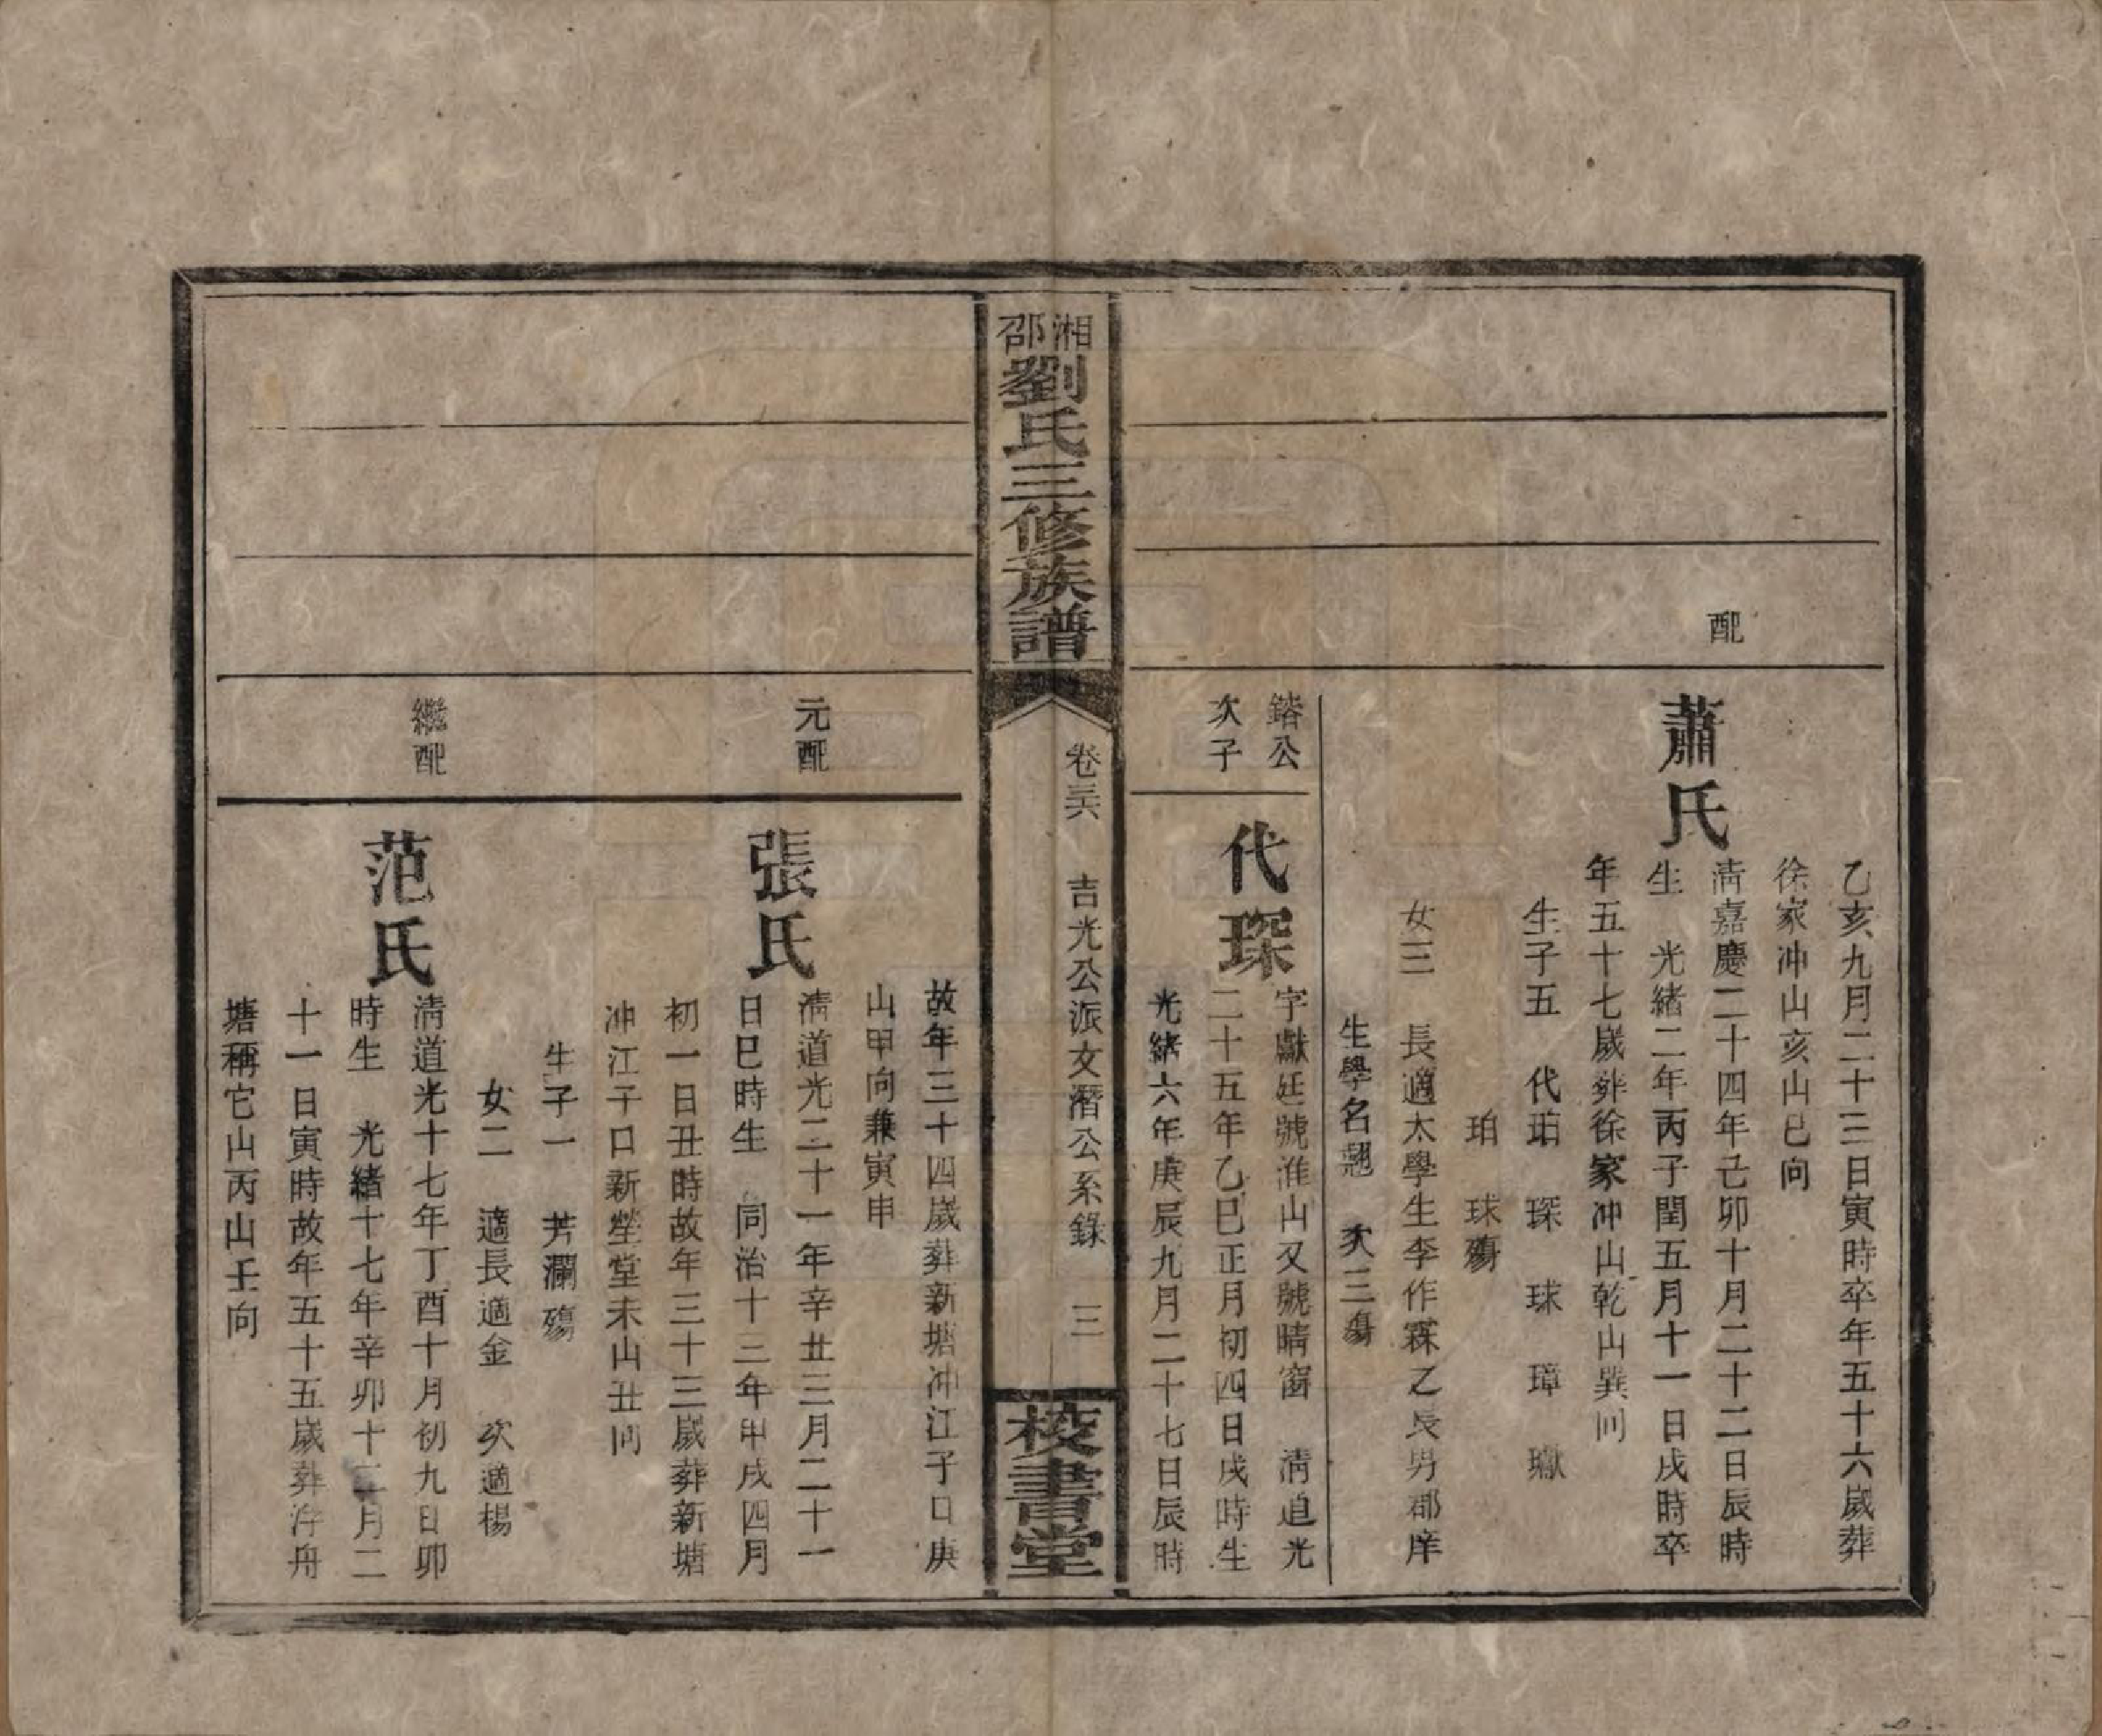 乙亥九月二十三日寅時卒年五十六歲葬
徐家冲山亥山巳向
配
蕭氏
清嘉慶二十四年己卯十月二十二日辰時
生 光緒二年丙子閏五月十一日戌時卒
年五十七歲葬徐家冲山乾山巽向
生子五 代珀 琛 球 璋 瓛
珀 球殤
女三 長適太學生李作霖乙長男郡庠
生學名翹 次三殤
鍇公
次子
代琛
字獻廷號淮山又號晴窗 清道光
二十五年乙巳正月初四日戌時生
光緒六年庚辰九月二十七日辰時
湘邵劉氏三修族譜
卷三六 吉光公派文潛公系錄 三
校書堂
故年三十四歲葬新塘冲江子口庚
山甲向兼寅申
元配
張氏
清道光二十一年辛丑三月二十一
日巳時生 同治十三年甲戌四月
初一日丑時故年三十三歲葬新塘
冲江子口新塋堂未山丑向
生子一 芳瀾殤
女二 適長適金 次適楊
繼配
范氏
清道光十七年丁酉十月初九日卯
時生 光緒十七年辛卯十二月二
十一日寅時故年五十五歲葬洊舟
塘稱它山丙山壬向